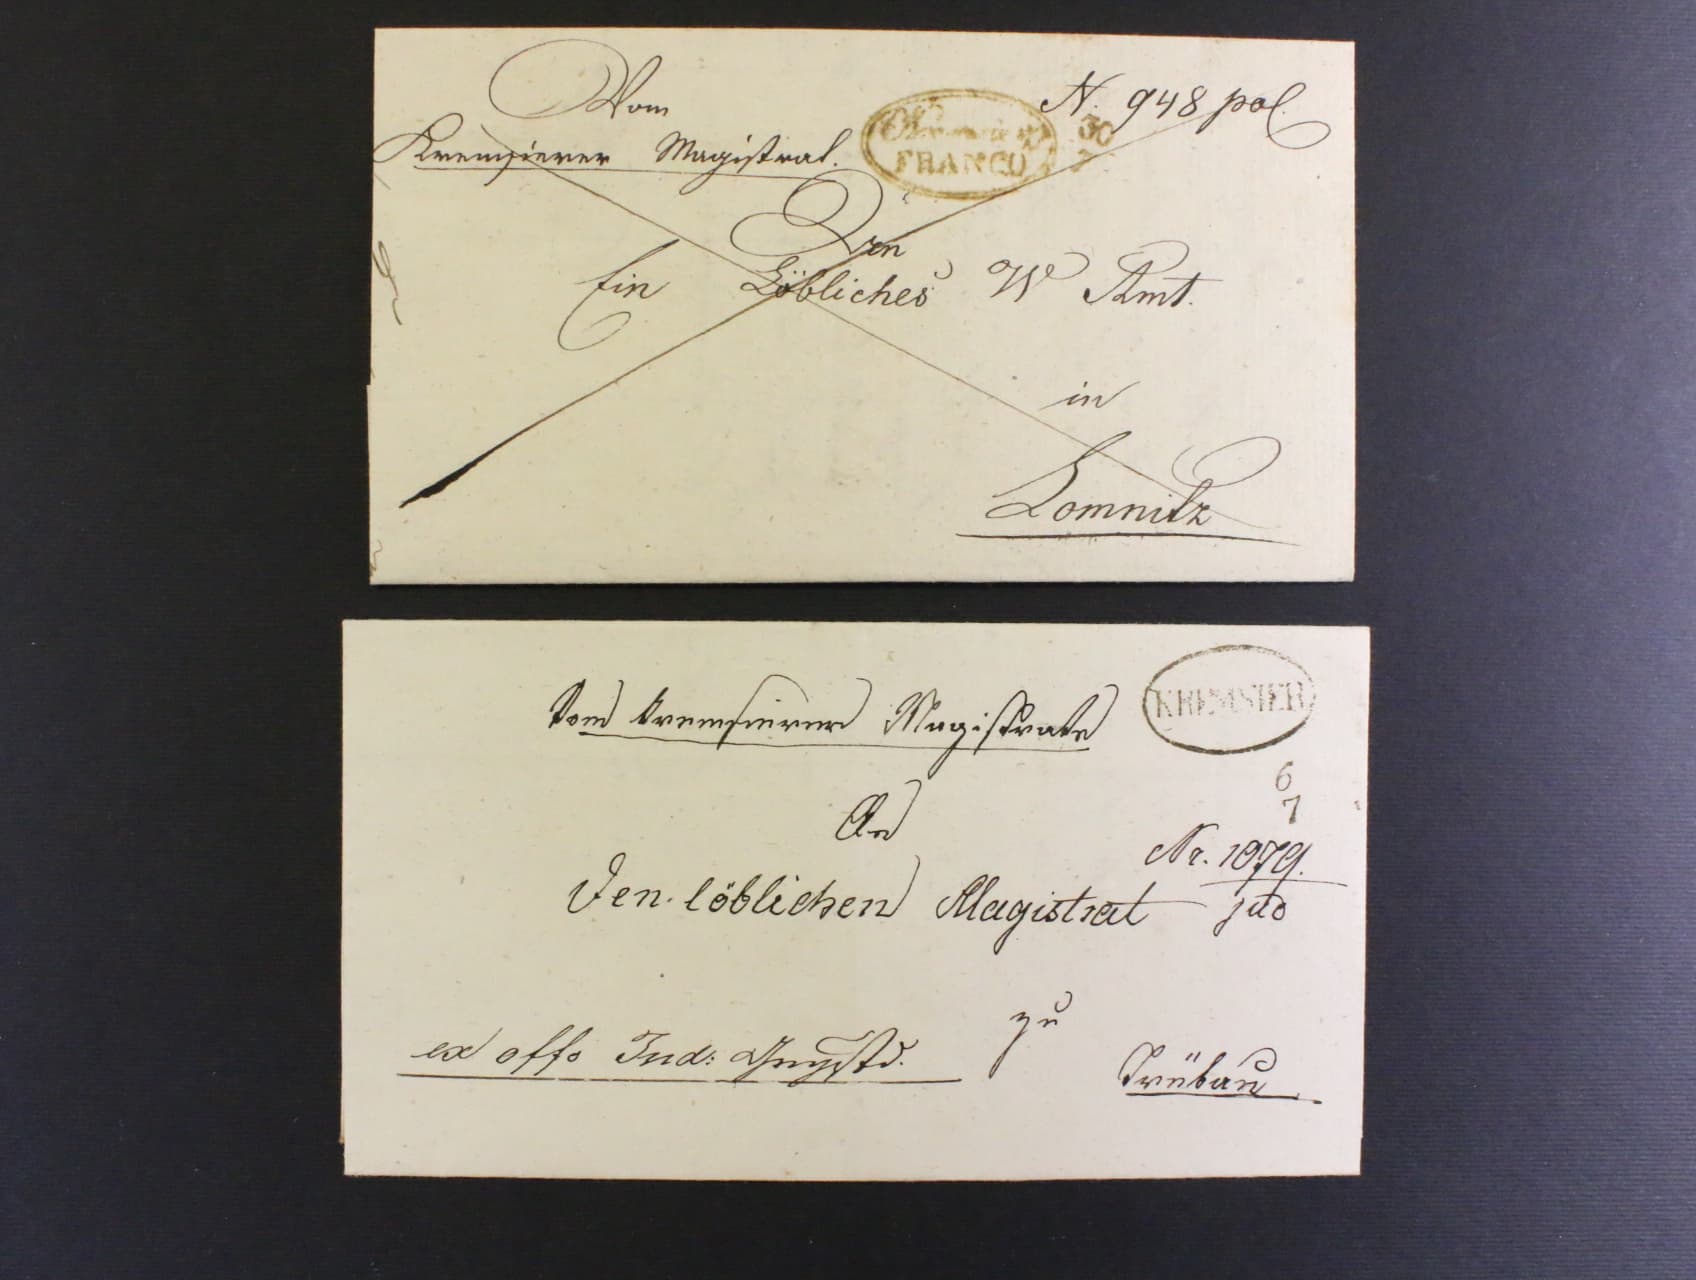 Vom
N. 948 pol.
Kremsierer Magistrat.
FRANCO
30
An
Ein Löbliches W Amt.
in
Lomnitz
KREMSIER
Vom Kremsierer Magistrate
6
7
An
Nr. 1079.
Den löblichen Magistrat
jud
zu
ex offo Jud:
Trübau